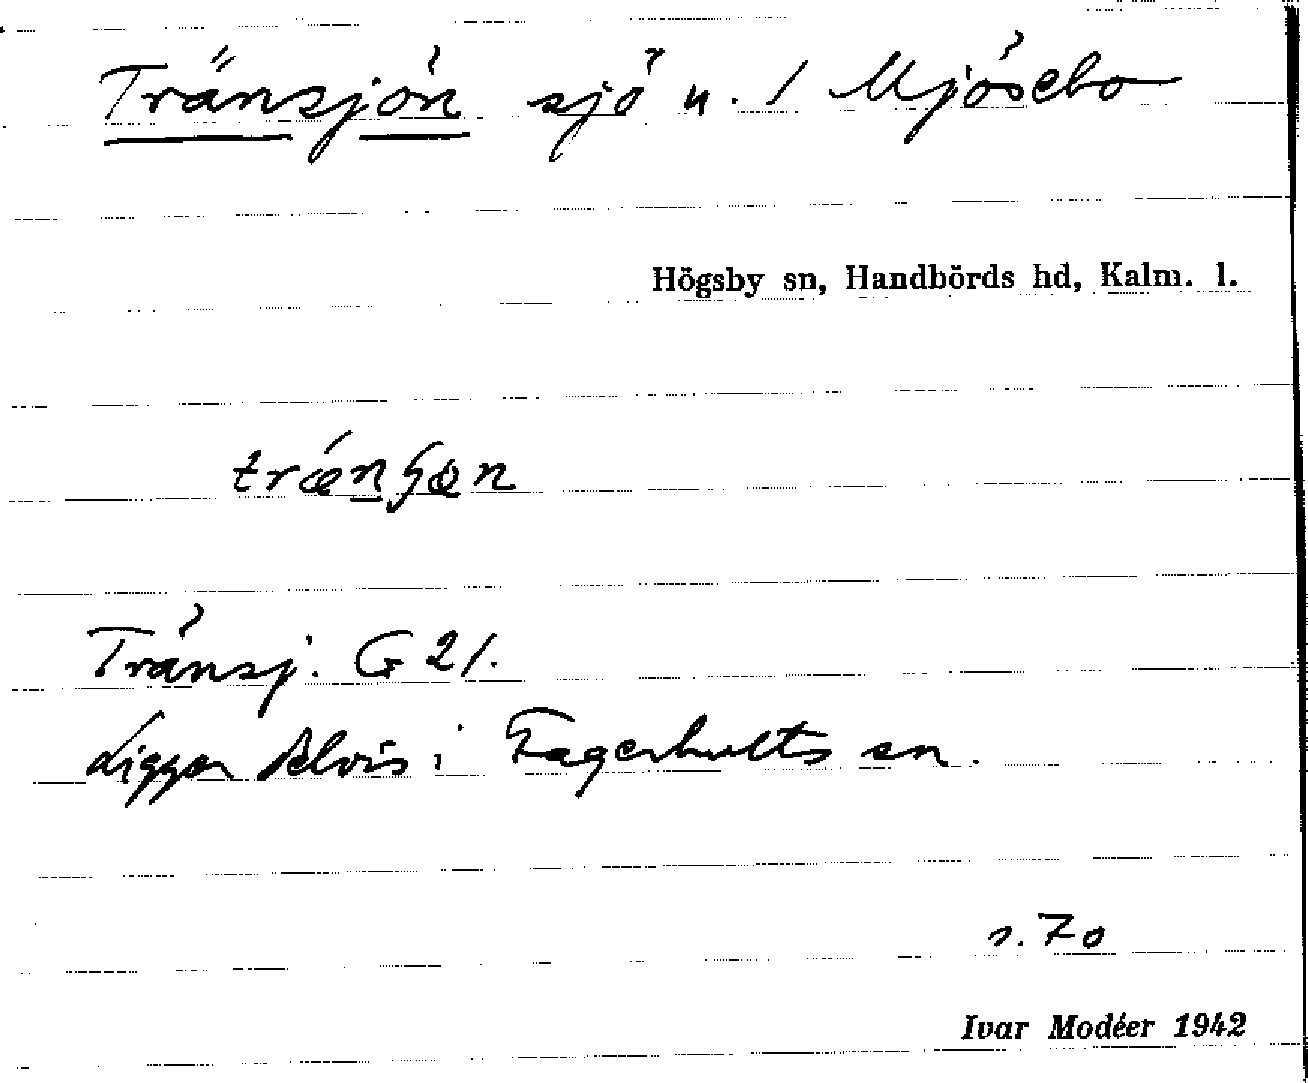 Tränsjön sjö u. / Mjösebo
Högsby sn, Handbörds hd, Kalm. l.
Tränsj. G 21.
Ligger delvis i Fagerhults sn.
s. 70
Ivar Modéer 1942